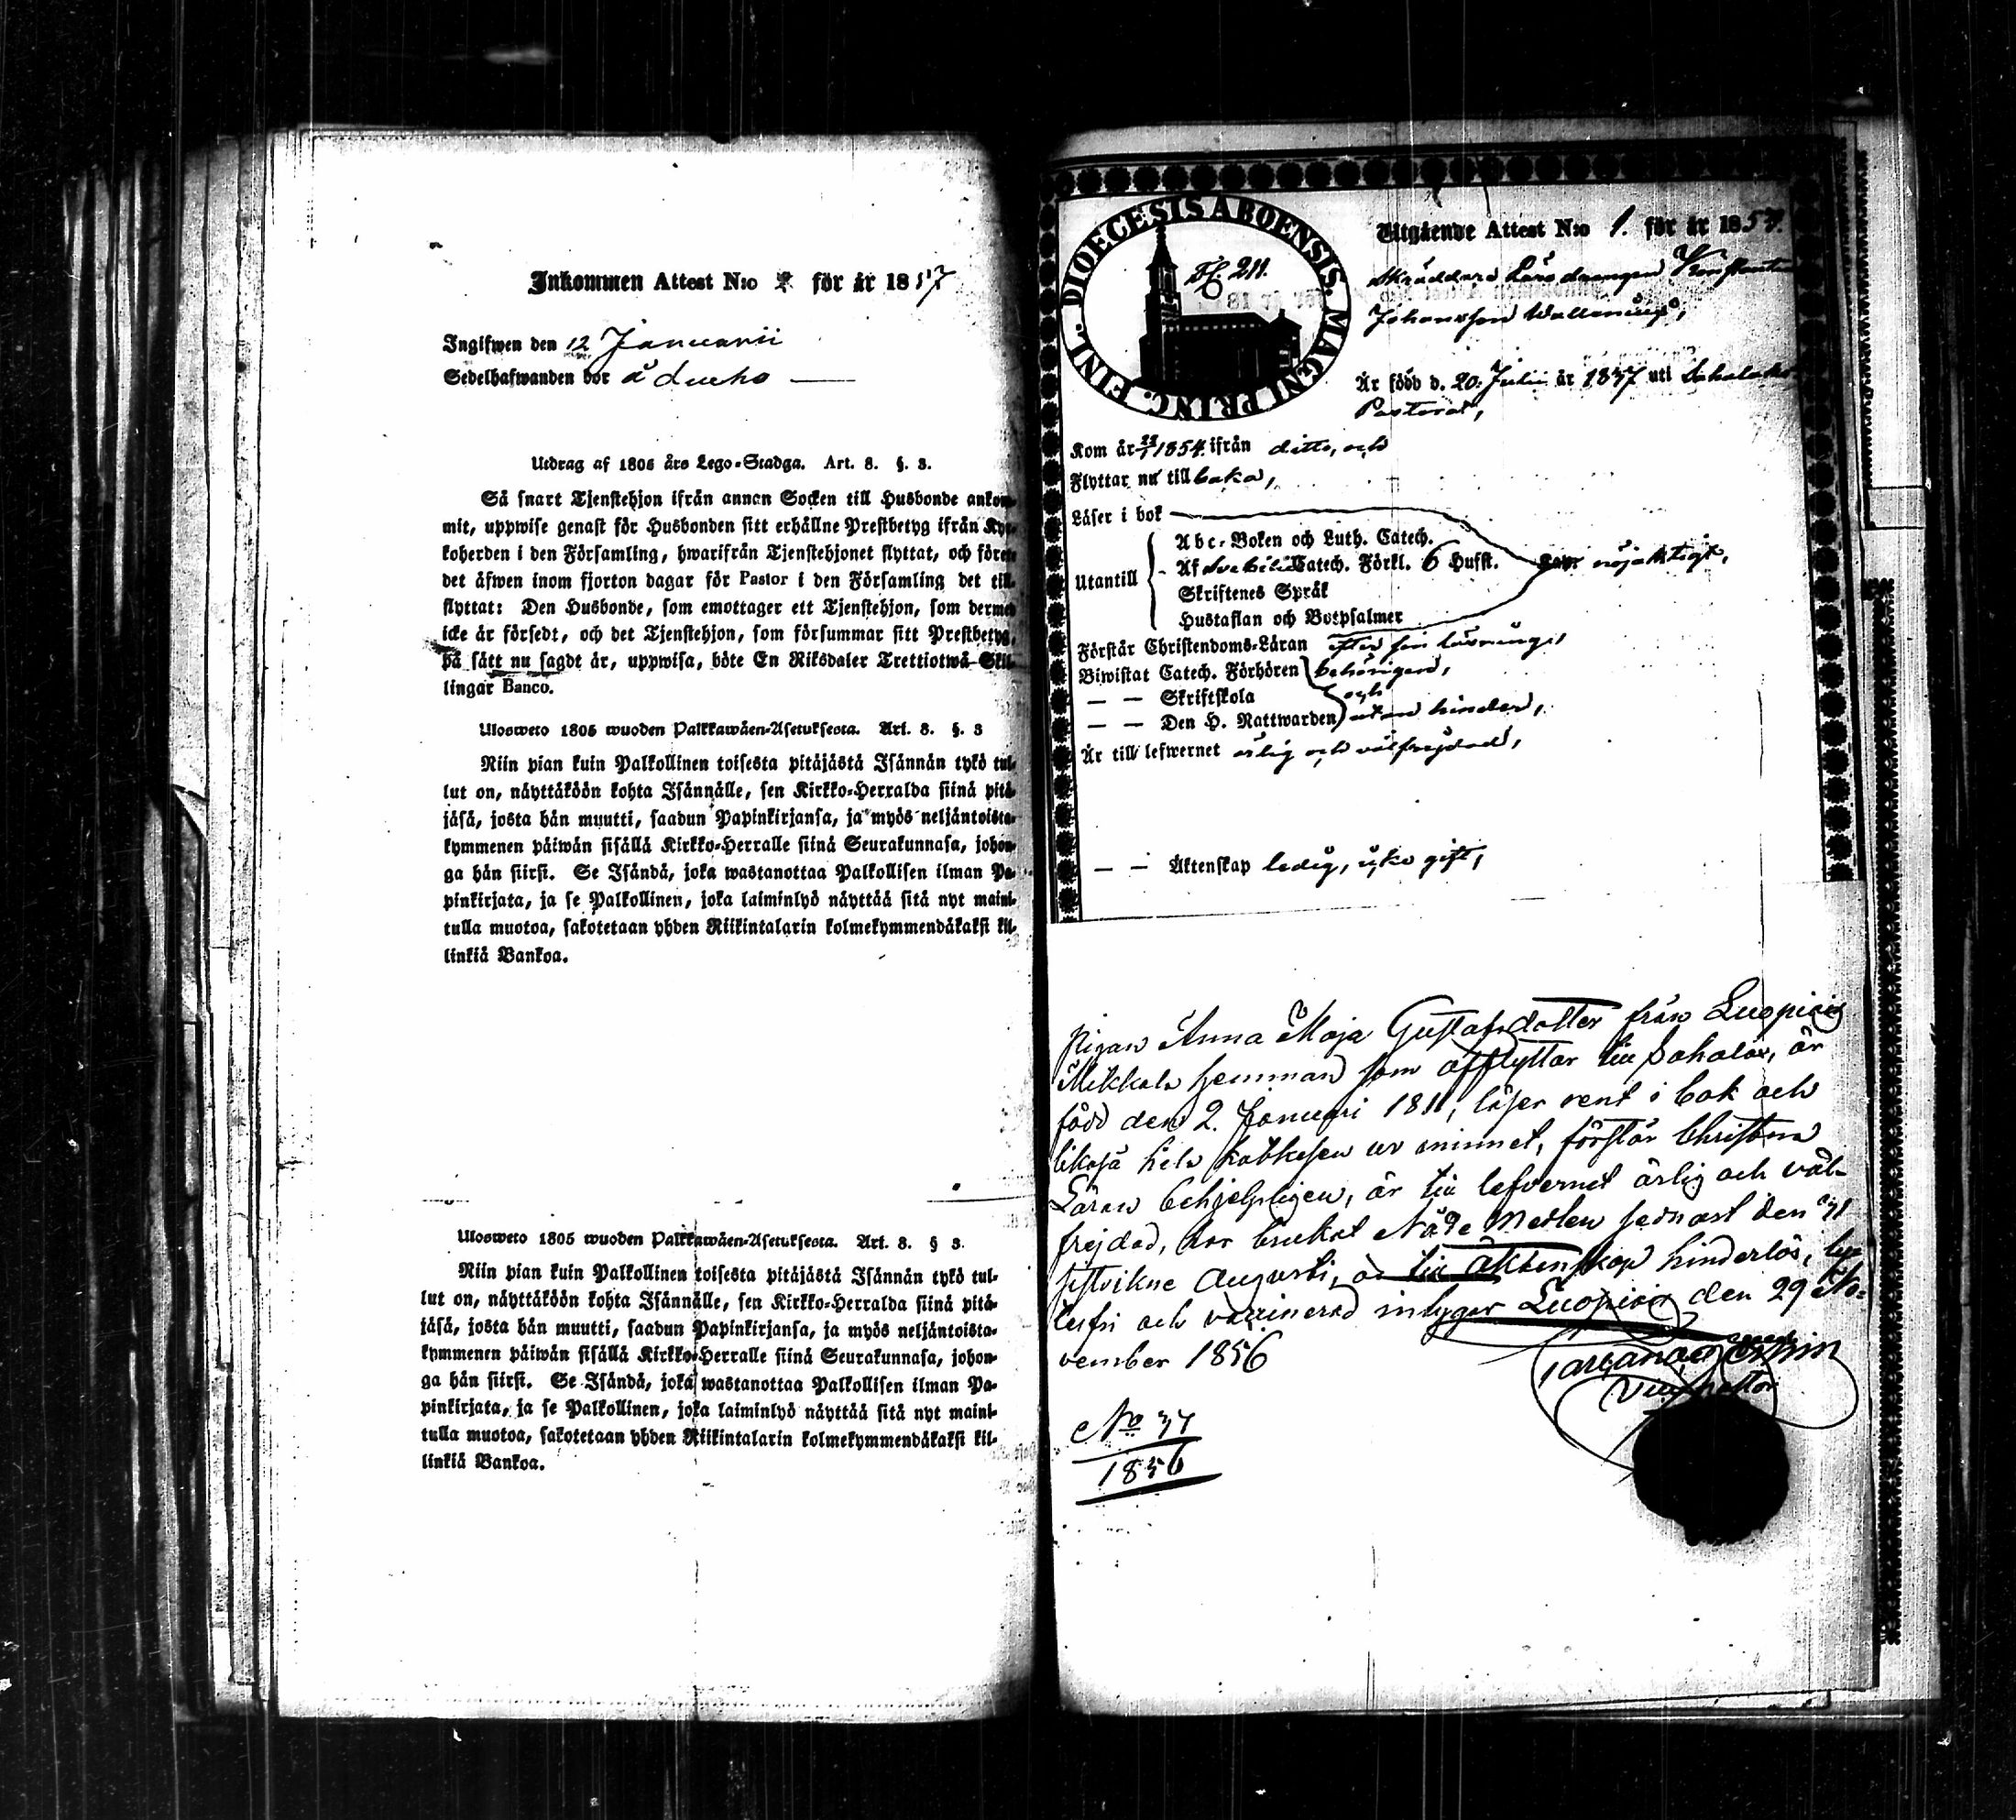 Inkommen Attest N:o 2 för år 1857
Ingifwen den 12 Januarii
Sedelhafwanden bor å Lucho
Utdrag af 1805 års Lego-Stadga. Art. 8. §. 3.
Så snart Tjenstehjon ifrån annan Socken till Husbonde ankom-
mit, uppwise genast för Husbonden sitt erhållne Prestbetyg ifrån Kyr-
koherden i den Församling, hwarifrån Tjenstehjonet flyttat, och förete
det äfwen inom fjorton dagar för Pastor i den Församling det till-
flyttat: Den Husbonde, som emottager ett Tjenstehjon, som dermed
icke är försedt, och det Tjenstehjon, som försummar sitt Prestbetyg,
på sätt nu sagdt är, uppwisa, böte En Riksdaler Trettiotwå Skil-
lingar Banco.
Ulosweto 1805 wuoden Palkkawäen-Asetuksesta. Art. 8. §. 3
Niin pian kuin Palkollinen toisesta pitäjästä Isännän tykö tul-
lut on, näyttäköön kohta Isännälle, sen Kirkko-Herralda siinä pitä-
jäsä, josta hän muutti, saadun Papinkirjansa, ja myös neljäntoista-
kymmenen päiwän sisällä Kirkko-Herralle siinä Seurakunnasa, johon-
ga hän siirsi. Se Isändä, joka wastanottaa Palkollisen ilman Pa-
pinkirjata, ja se Palkollinen, joka laiminlyö näyttää sitä nyt maini-
tulla muotoa, sakotetaan yhden Riikintalarin kolmekymmendäkaksi kil-
linkiä Bankoa.
Ulosweto 1805 wuoden Palkkawäen-Asetuksesta. Art. 8. § 3.
Niin pian kuin Palkollinen toisesta pitäjästä Isännän tykö tul-
lut on, näyttäköön kohta Isännälle, sen Kirkko-Herralda siinä pitä-
jäsä, josta hän muutti, saadun Papinkirjansa, ja myös neljäntoista-
kymmenen päiwän sisällä Kirkko-Herralle siinä Seurakunnasa, johon-
ga hän siirsi. Se Isändä, joka wastanottaa Palkollisen ilman Pa-
pinkirjata, ja se Palkollinen, joka laiminlyö näyttää sitä nyt maini-
tulla muotoa, sakotetaan yhden Riikintalarin kolmekymmendäkaksi kil-
linkiä Bankoa.
DIOECESIS ABOENSIS. MAGNI PRINC. FINL.
Fol. 211.
Utgående Attest N:o 1. för år 1857.
Skräddare Läredrengen Konstantin
Johansson Wallenius,
Är född d. 20. Julii år 1837 uti Sahalaks
Pastorat,
Kom år 1854. ifrån ditto, och
Flyttar nu tillbaka,
Läser i bok
Utantill
Abc-Boken och Luth. Catech.
Af Svebilii Catech. Förkl. 6 Hufst. nöjaktigt,
Skriftenes Språk
Hustaflan och Botpsalmer
Förstår Christendoms-Läran efter sin lärnung,
Biwistat Catech. Förhören behörigen,
— — Skriftskola och
— — Den H. Nattwarden utan hinder,
Är till lefwernet ärlig och välfrejdad,
— — Äktenskap ledig, icke gift,
Pigan Anna Maja Gustafsdotter från Luopiois
Mikkola hemman som afflyttar till Sahalax, är
född den 2. Januari 1811, läser rent i bok och
likaså hela katkesen ur minnet, förstår Christna
Läran behjelpligen, är till lefvernet ärlig och väl-
frejdad, har brukat Nåde Medlen sednast den 31
sistvikne Augusti, är till äktenskap hinderlös,
och vaccinerad intygar Luopiois den 29 No-
vember 1856
No 37
1856